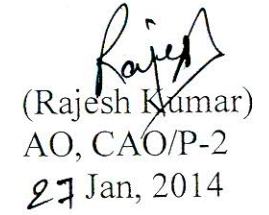 Rajesh
(Rajesh Kumar)
AO, CAO/P-2
27 Jan, 2014